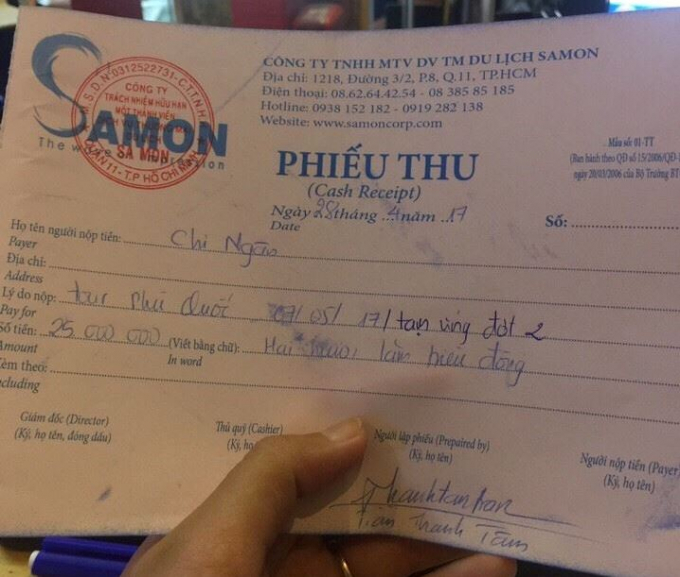 CÔNG TY TNHH MTV DV TM DU LỊCH SAMON
Địa chỉ: 1218, Đường 3/2, P.8, Q.11, TP.HCM
Điện thoại: 08.62.64.42.54 - 08 385 85 185
Hotline: 0938 152 182 - 0919 282 138
Website: www.samoncorp.com
M.S.D.N: 0312522731-C.T.T.N.H
CÔNG TY
TRÁCH NHIỆM HỮU HẠN
MỘT THÀNH VIÊN
SA MON
QUẬN 11 - T.P HỒ CHÍ MINH
SAMON
PHIẾU THU
(Cash Receipt)
Mẫu số: 01-TT
(Ban hành theo QĐ số 15/2006/QĐ-
ngày 20/03/2006 của Bộ Trưởng BT
Ngày 28 tháng 4 năm 17
Date
Số:
Họ tên người nộp tiền: Chị Ngân
Payer
Địa chỉ:
Address
Lý do nộp: tour Phú Quốc 07/05/17/ tạm ứng đợt 2
Pay for
Số tiền: 25 000 000 (Viết bằng chữ): Hai mươi lăm triệu đồng
Amount In word
Kèm theo:
Including
Giám đốc (Director) Thủ quỹ (Cashier) Người lập phiếu (Prepaired by) Người nộp tiền (Payer)
(Ký, họ tên, đóng dấu) (Ký, họ (Ký, họ tên) (Ký, họ tên)
Trần Thanh Tâm